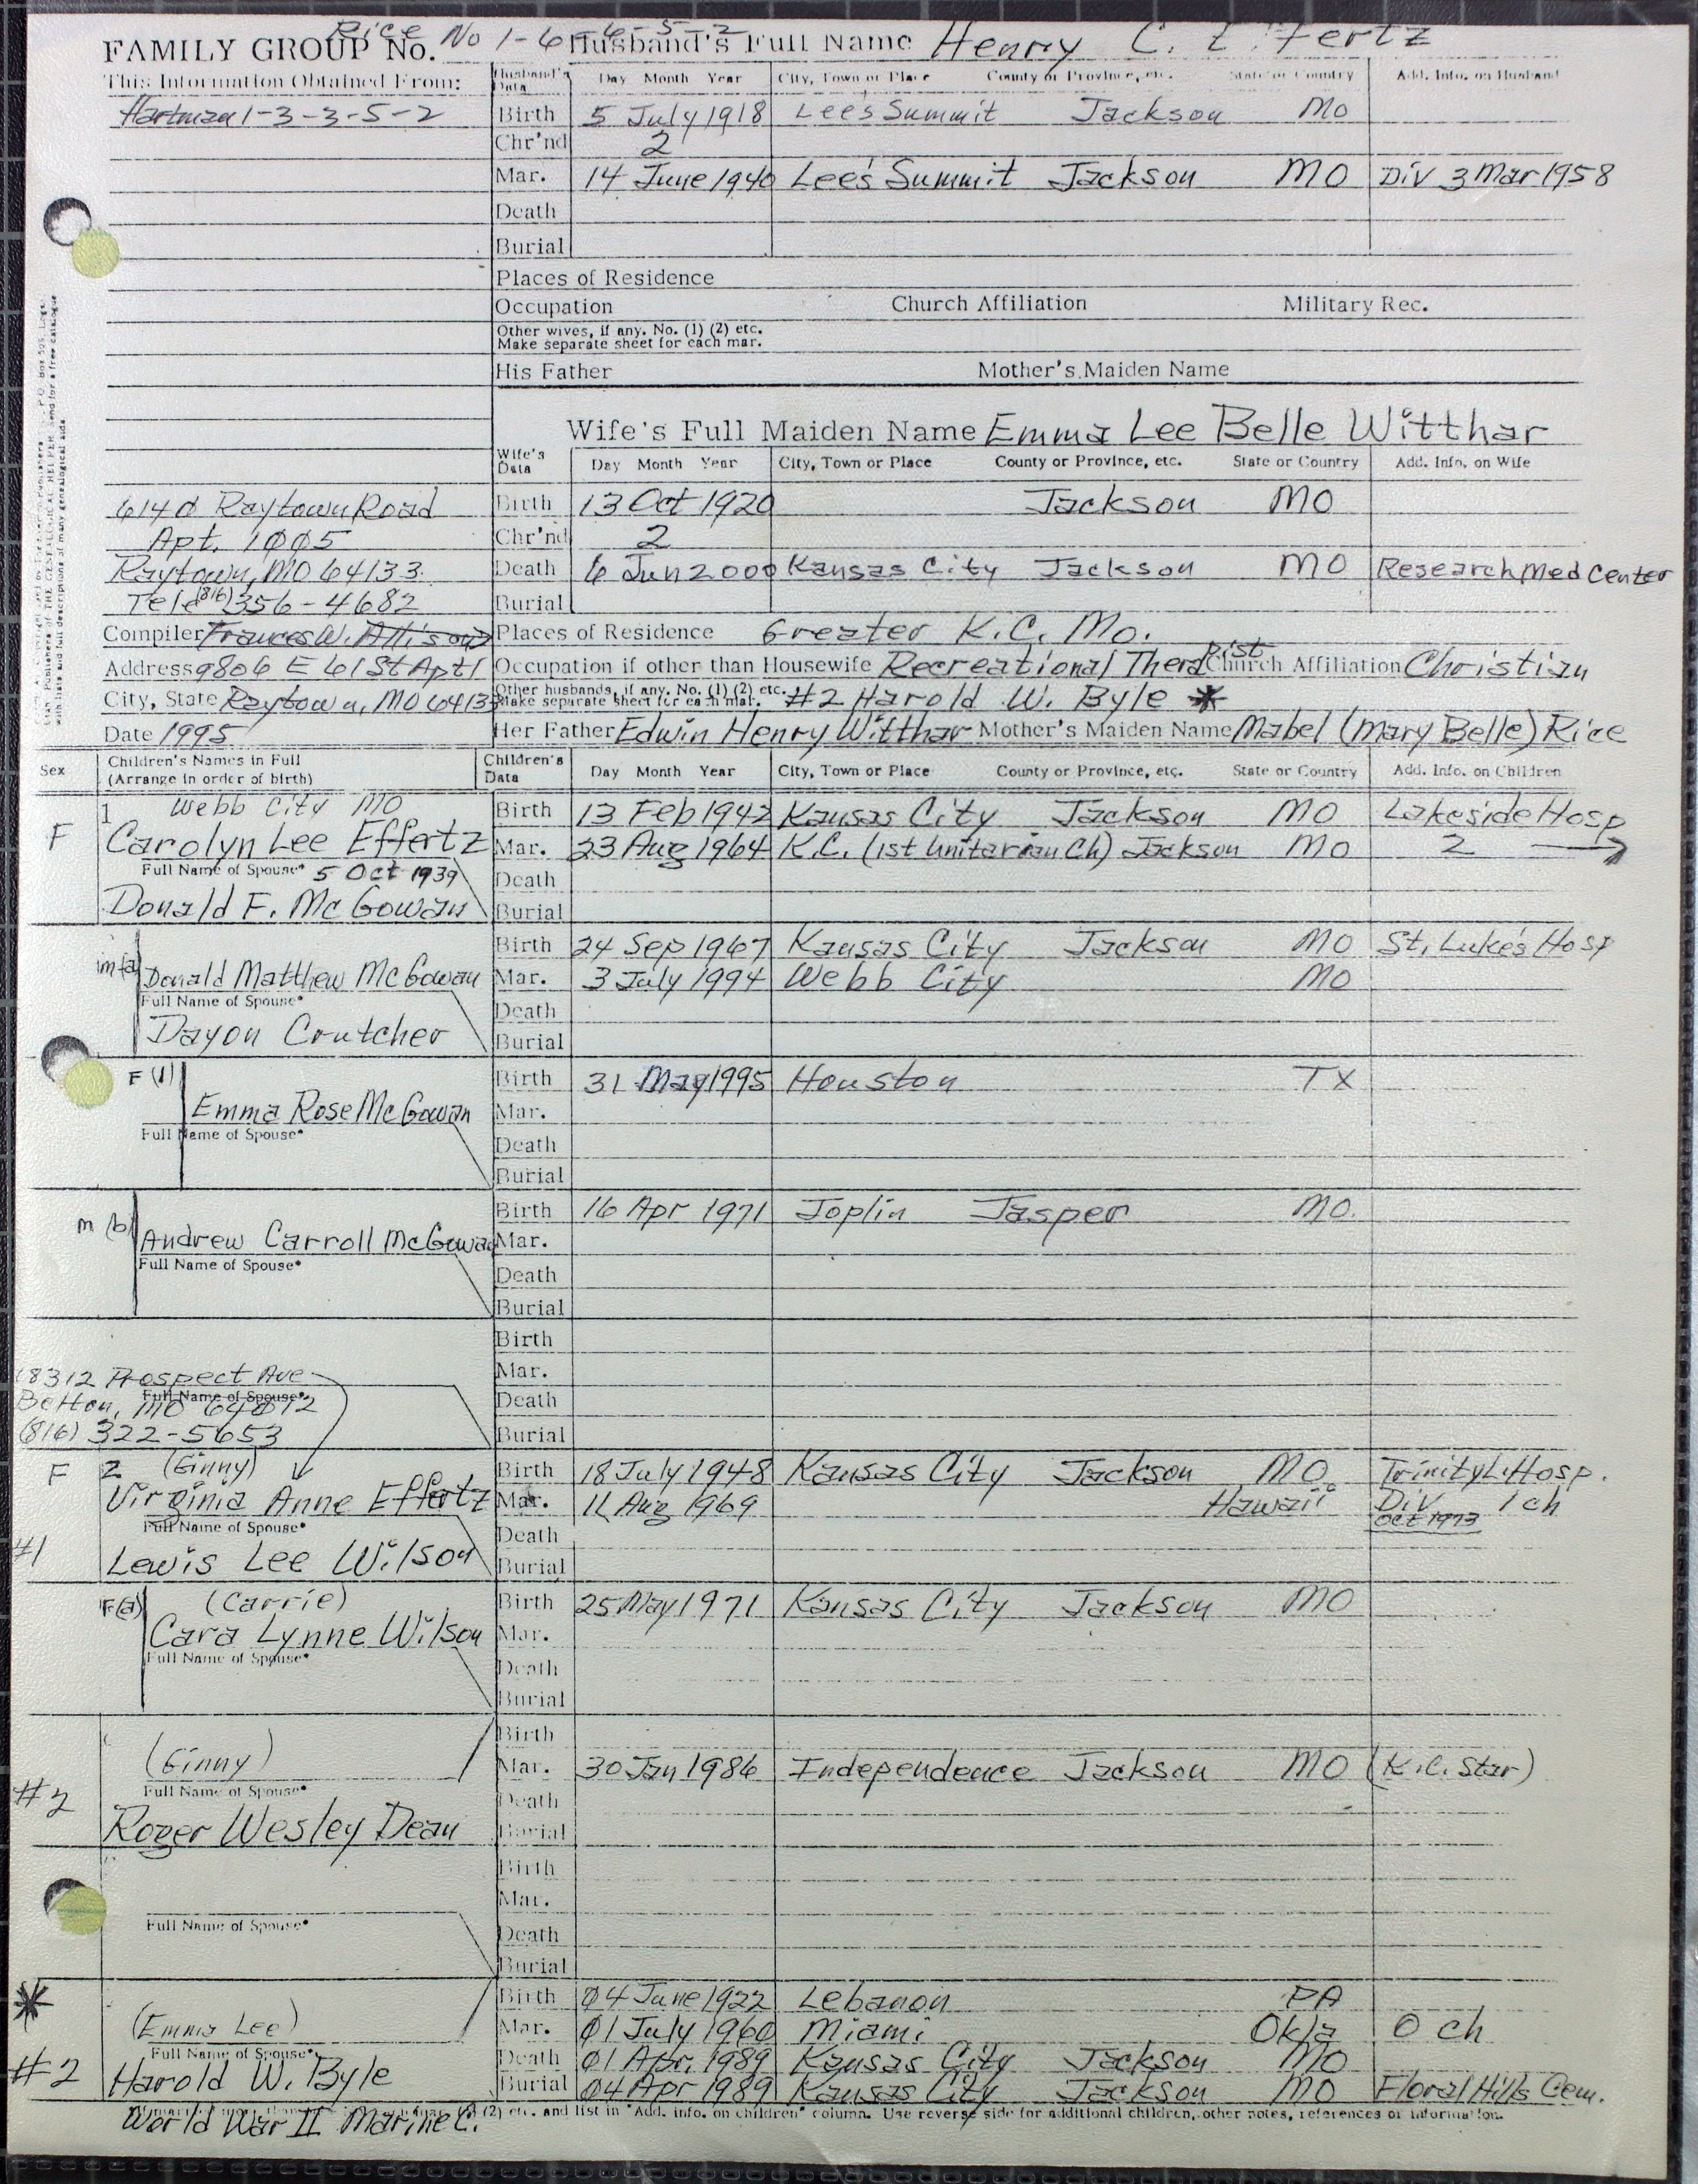 Rice No 1-6-6-5-2
FAMILY GROUP No. Husband's Full Name Henry C. Effertz
This Information Obtained From: Husband's Data Day Month Year City, Town or Place County or Province, etc. State or Country Add. Info. on Husband
Hartman 1-3-3-5-2 Birth 5 July 1918 Lee's Summit Jackson MO
Chr'nd 2
Mar. 14 June 1940 Lee's Summit Jackson MO Div 3 Mar 1958
Death
Burial
Places of Residence
Occupation Church Affiliation Military Rec.
Other wives, if any. No. (1) (2) etc.
Make separate sheet for each mar.
His Father Mother's Maiden Name
Wife's Full Maiden Name Emma Lee Belle Witthar
Wife's Data Day Month Year City, Town or Place County or Province, etc. State or Country Add. Info. on Wife
6140 Raytown Road Birth 13 Oct 1920 Jackson MO
Apt. 1005 Chr'nd 2
Raytown, MO 64133 Death 6 Jun 2000 Kansas City Jackson MO Research Med Center
Tele (816) 356-4682 Burial
Compiler Frances W. Allison Places of Residence Greater K.C. Mo.
Address 9806 E 61 St Apt 1 Occupation if other than Housewife Recreational Therapist Church Affiliation Christian
City, State Raytown, MO 64133 Other husbands, if any. No. (1) (2) etc. Make separate sheet for each mar. #2 Harold W. Byle *
Date 1995 Her Father Edwin Henry Witthar Mother's Maiden Name Mabel (Mary Belle) Rice
Sex Children's Names in Full (Arrange in order of birth) Children's Data Day Month Year City, Town or Place County or Province, etc. State or Country Add. Info. on Children
1 Webb City MO Birth 13 Feb 1942 Kansas City Jackson MO Lakeside Hosp
F Carolyn Lee Effertz Mar. 23 Aug 1964 K.C. (1st Unitarian Ch) Jackson MO 2 →
Full Name of Spouse* 5 Oct 1939 Death
Donald F. McGowan Burial
Birth 24 Sep 1967 Kansas City Jackson MO St. Luke's Hosp
m (a) Donald Matthew McGowan Mar. 3 July 1994 Webb City MO
Full Name of Spouse* Death
Dayon Crutcher Burial
F (1) Birth 31 May 1995 Houston TX
Emma Rose McGowan Mar.
Full Name of Spouse* Death
Burial
Birth 16 Apr 1971 Joplin Jasper MO.
m (b) Andrew Carroll McGowan Mar.
Full Name of Spouse* Death
Burial
Birth
18312 Prospect Ave Mar.
Full Name of Spouse* Death
Belton, MO 64012
(816) 322-5653 Burial
F 2 (Ginny) Birth 18 July 1948 Kansas City Jackson MO Trinity L. Hosp.
Virginia Anne Effertz Mar. 11 Aug 1969 Hawaii Div Oct 1973 1 ch
Full Name of Spouse* Death
#1 Lewis Lee Wilson Burial
F (a) (Carrie) Birth 25 May 1971 Kansas City Jackson MO
Cara Lynne Wilson Mar.
Full Name of Spouse* Death
Burial
Birth
(Ginny) Mar. 30 Jan 1986 Independence Jackson MO (K.C. Star)
#2 Full Name of Spouse* Death
Roger Wesley Dean Burial
Birth
Mar.
Full Name of Spouse* Death
Burial
* Birth 04 June 1922 Lebanon PA
(Emma Lee) Mar. 01 July 1960 Miami Okla 0 ch
Full Name of Spouse* Death 01 Apr. 1989 Kansas City Jackson MO
#2 Harold W. Byle Burial 04 Apr 1989 Kansas City Jackson MO Floral Hills Cem.
(2) etc. and list in "Add. info. on children" column. Use reverse side for additional children, other notes, references or information.
World War II Marine C.